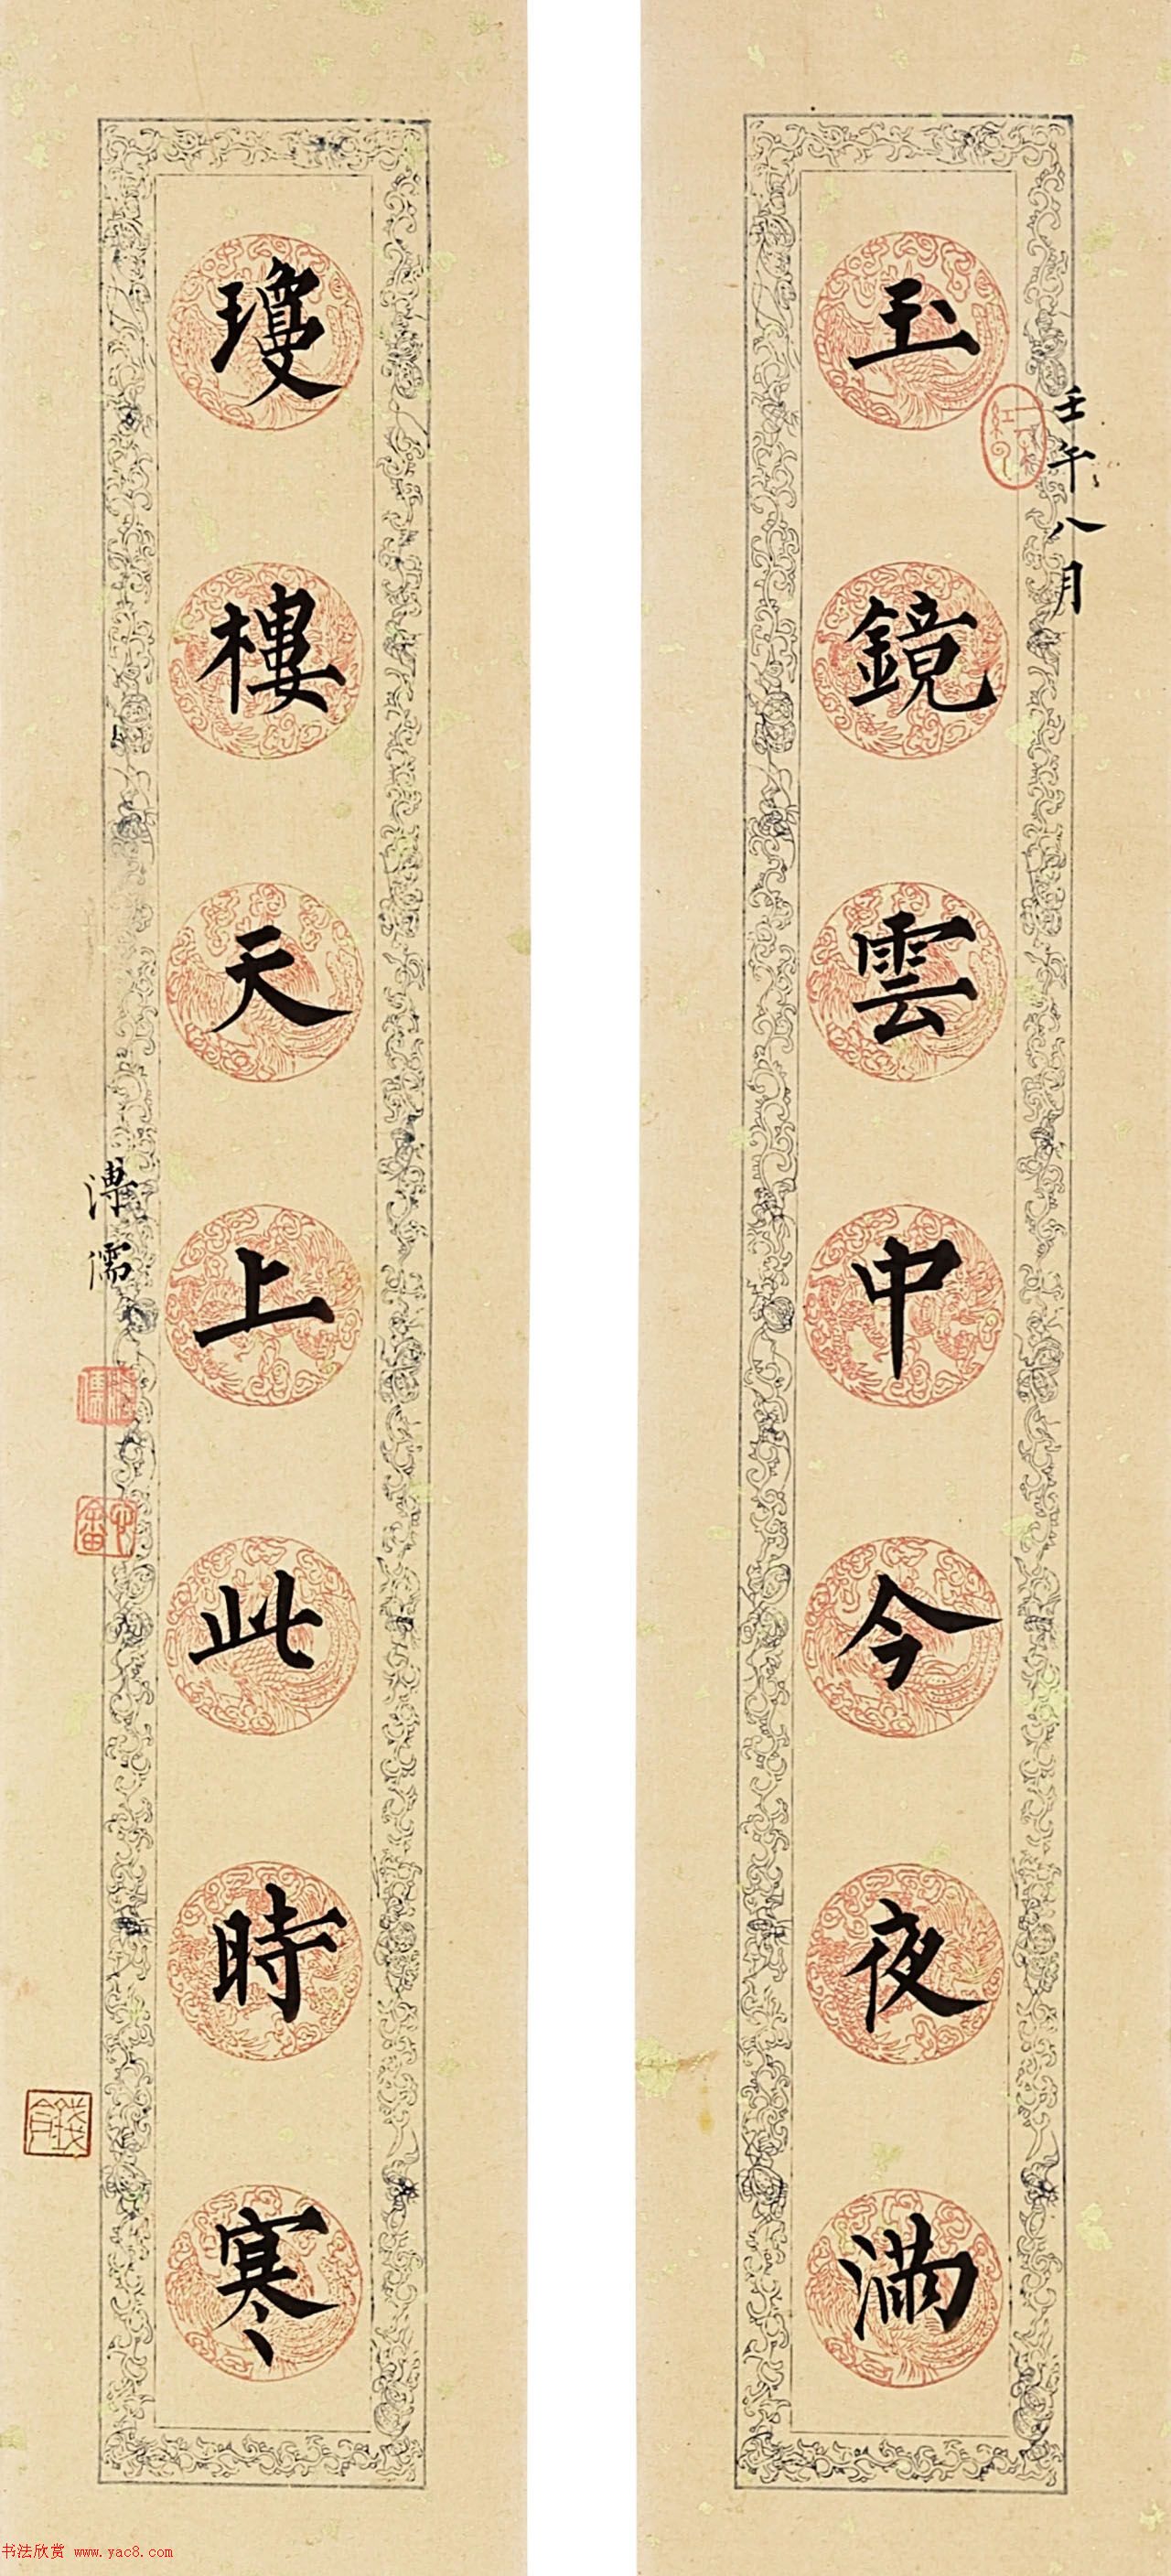 壬午八月
玉鏡雲中今夜滿
瓊樓天上此時寒
溥儒
書法欣赏 www.yac8.com